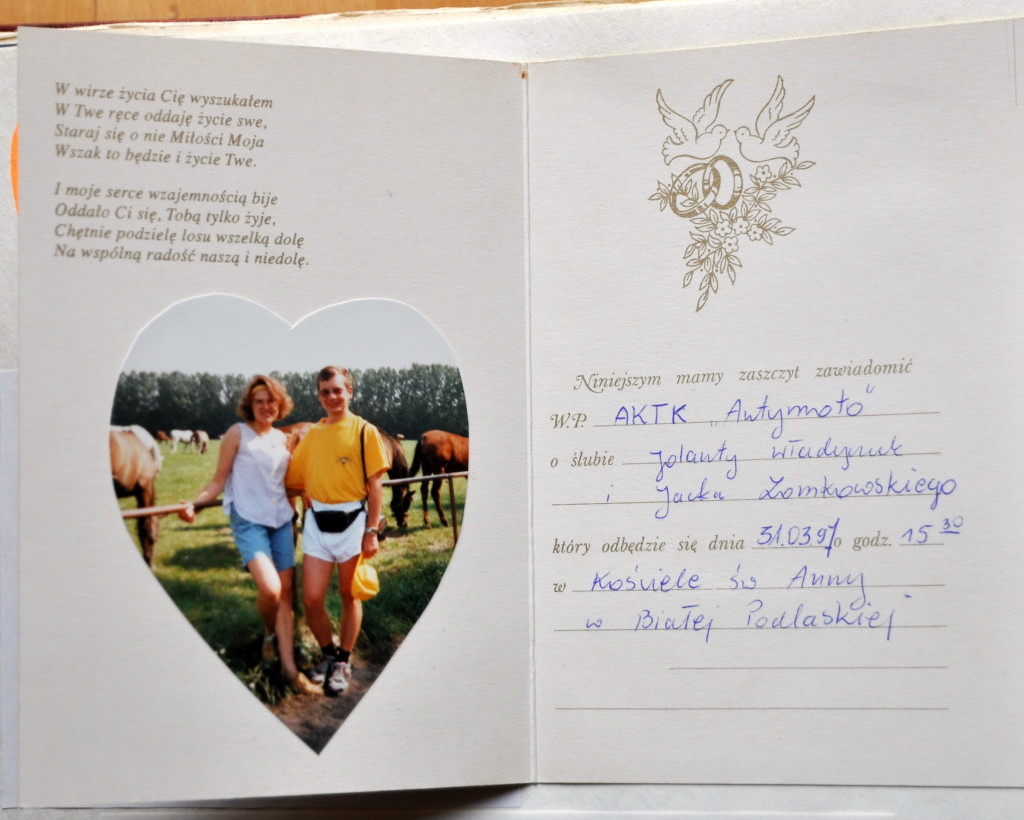 W wirze życia Cię wyszukałem
W Twe ręce oddaję życie swe,
Staraj się o nie Miłości Moja
Wszak to będzie i życie Twe.
I moje serce wzajemnością bije
Oddało Ci się, Tobą tylko żyje,
Chętnie podzielę losu wszelką dolę
Na wspólną radość naszą i niedolę.
Niniejszym mamy zaszczyt zawiadomić
W.P. AKTK „Antymoto"
o ślubie Jolanty Władyniuk
i Jacka Łomkowskiego
który odbędzie się dnia 31.03.97 o godz. 15 30
w Kościele św Anny
w Białej Podlaskiej